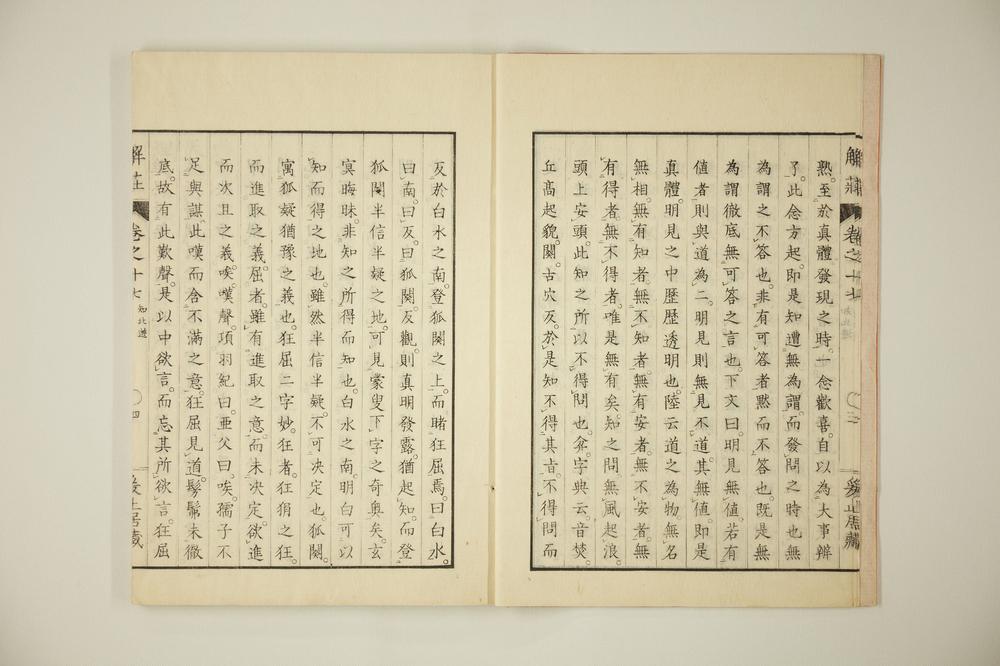 解莊 卷之十七
熟。至於真體發現之時。一念歡喜。自以為大事辦
了。此念方起。即是知遭無為謂。而發問之時也。無
為謂之不答也。非有可答者默而不答也。既是無
為謂徹底無可答之言也。下文曰。明見無值。若有
值者。則與道為二。明見則無見。不道其無值。即是
真體。明見之中。歷歷透明也。陸云。道之為物。無名
無相。無有知者。無不知者。無有安者。無不安者。無
有得者。無不得者。唯是無有矣。知之問。無風起浪。
頭上安頭。此知之所以不得問也。弅。字典云。音焚。
丘高起貌。闋古穴反。於是知不得其旨。不得問而
反於白水之南。登狐闋之上。而睹狂屈焉。曰白水。
曰南。曰反。曰狐闋。反觀則真明發露。猶起知。而登
狐闋。半信半疑之地。可見蒙叟下字之奇奧矣。玄
冥晦昧。非知之所得而知也。白水之南。明白可以
知而得之地也。雖然半信半疑。不可決定也。狐闋。
寓狐疑猶豫之義也。狂屈二字妙。狂者。狂狷之狂。
而進取之義。屈者。雖有進取之意。而未決定。欲進
而次且之義。唉。嘆聲。項羽紀曰。亜父曰。唉。孺子不
足與謀。此嘆而含不滿之意。狂屈見道髣髴未徹
底。故有此歎聲。是以中欲言。而忘其所欲言。狂屈
解莊 卷之十七 知北遊 四